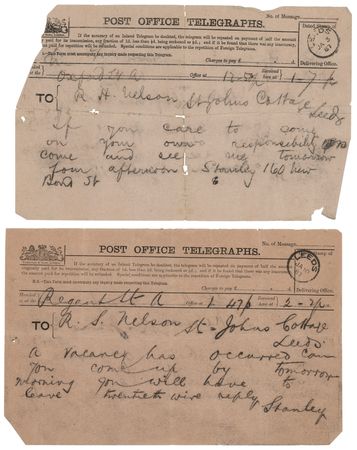 No. of Message
POST OFFICE TELEGRAPHS.
If the accuracy of an Inland Telegram be doubted, the telegram will be repeated on payment of half the amount
paid for its transmission, any fraction of 1d. less than ½d. being reckoned as ½d.; and if it be found that there was any inaccuracy,
the amount paid for repetition will be refunded. Special conditions are applicable to the repetition of Foreign Telegrams.
Dated Stamp of
Delivering Office.
Charges to pay
Oxford St A
Office at
Received here at
1-7 p
TO
R H Nelson St Johns Cottage
Leeds
If you care to come
on your own responsibility
come and see me tomorrow
your afternoon Stanley 160 New
Bond St
6
No. of Message.
POST OFFICE TELEGRAPHS.
If the accuracy of an Inland Telegram be doubted, the telegram will be repeated on payment of half the amount
originally paid for its transmission, any fraction of 1d. less than ½d. being reckoned as ½d.; and if it be found that there was any inaccuracy,
the amount paid for repetition will be refunded. Special conditions are applicable to the repetition of Foreign Telegrams.
LEEDS
N.B.—This Form must accompany any inquiry made respecting this Telegram.
Charges to pay
Delivering Office.
Regent St A
Office at
1-47 p
Received here at
2-7 p
TO
R. S. Nelson St- Johns Cottage
Leeds
A vacancy has occurred can
you come up by tomorrow
morning you will have to
leave twentieth wire reply
Stanley